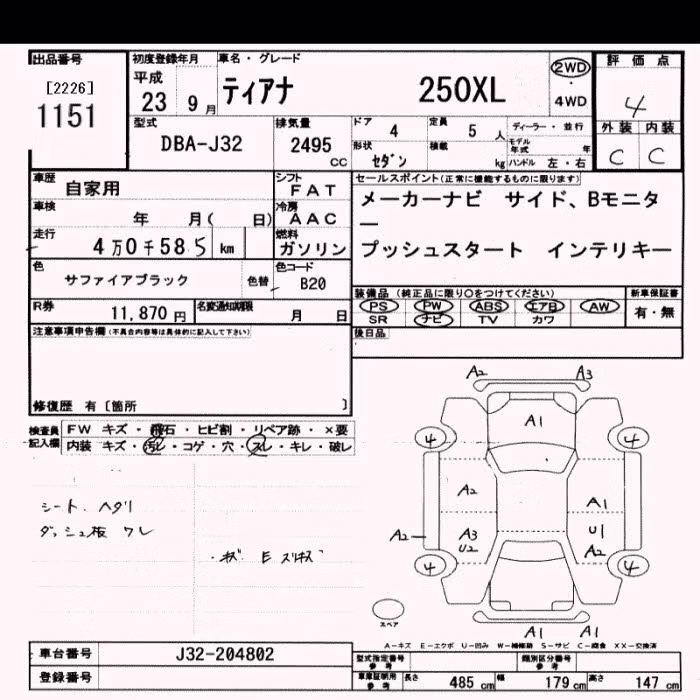 出品番号
[2226]
1151
初度登録年月
平成
23 9月
車名・グレード
ティアナ 250XL
2WD
・
4WD
評価点
4
外装 内装
C C
型式
DBA-J32
排気量
2495
CC
ドア
4
定員
5 人
形状
セダン
積載
kg
ディーラー・並行
モデル年式 年
ハンドル 左・右
車歴
自家用
シフト
FAT
車検
年 月( 日)
冷房
AAC
走行
4万0千585 km
燃料
ガソリン
色
サファイアブラック
色替
色コード
B20
R券
11,870 円
名変通知期限
月 日
セールスポイント(正常に機能するものに限ります)
メーカーナビ サイド、Bモニタ
ー
プッシュスタート インテリキー
装備品 (純正品に限り○をつけてください)
新車保証書
PS PW ABS エアB AW
SR ナビ TV カワ
有・無
後日品
注意事項申告欄(不具合内容等は具体的に記入して下さい)
修復歴 有 [箇所 ]
検査員
記入欄
FW キズ・飛石・ヒビ割・リペア跡・×要
内装 キズ・汚レ・コゲ・穴・スレ・キレ・破レ
シート.ヘタリ
ダッシュ板 ワレ
A2 A3
A1
4 4
A2
A1
A2
A3
U2
U1
A2
4 4
スペア
A1 A1
A-キズ E-エクボ U-凹み W-補修跡 S-サビ C-腐食 XX-交換済
車台番号
J32-204802
登録番号
型式指定番号
参考
類別区分番号
参考
車庫証明用
参考
長さ 485 cm 幅 179 cm 高さ 147 cm